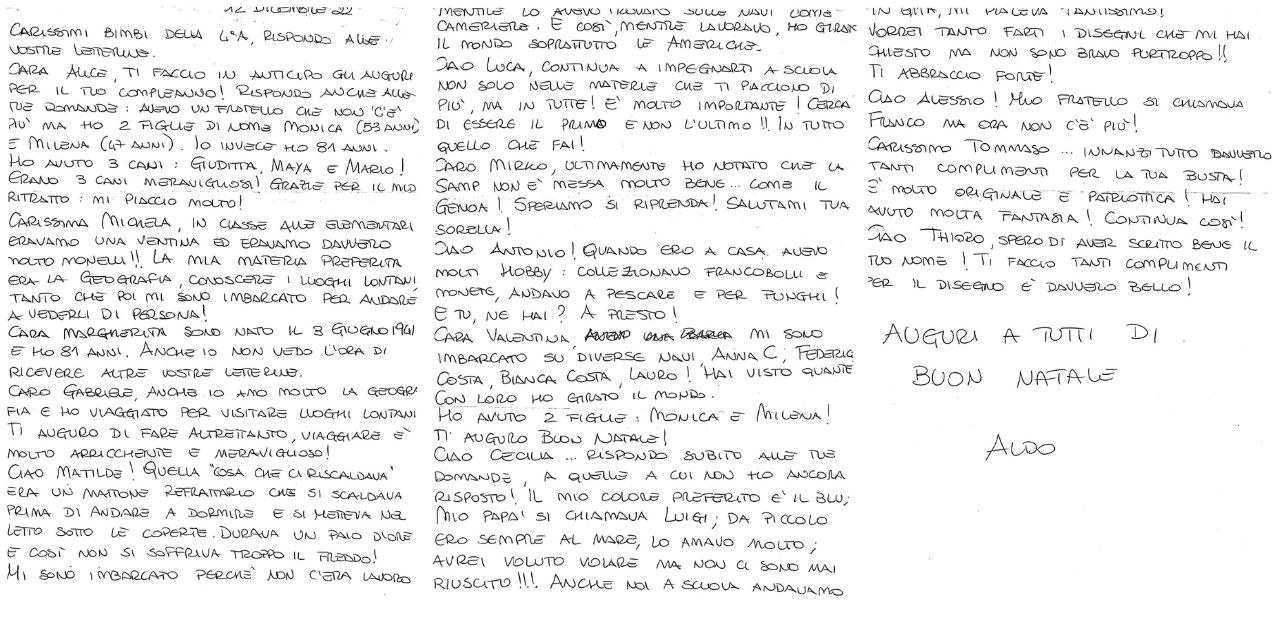 12 DICEMBRE 22
CARISSIMI BIMBI DELLA 4ªA, RISPONDO ALLE
VOSTRE LETTERINE.
CARA ALICE, TI FACCIO IN ANTICIPO GLI AUGURI
PER IL TUO COMPLEANNO! RISPONDO ANCHE ALLE
TUE DOMANDE: AVEVO UN FRATELLO CHE NON C'È
PIÙ MA HO 2 FIGLIE DI NOME MONICA (53 ANNI)
E MILENA (47 ANNI). IO INVECE HO 81 ANNI.
HO AVUTO 3 CANI: GIUDITTA, MAYA E MARIO!
ERANO 3 CANI MERAVIGLIOSI! GRAZIE PER IL MIO
RITRATTO: MI PIACCIO MOLTO!
CARISSIMA MICHELA, IN CLASSE ALLE ELEMENTARI
ERAVAMO UNA VENTINA ED ERAVAMO DAVVERO
MOLTO MONELLI!! LA MIA MATERIA PREFERITA
ERA LA GEOGRAFIA, CONOSCERE I LUOGHI LONTANI
TANTO CHE POI MI SONO IMBARCATO PER ANDARE
A VEDERLI DI PERSONA!
CARA MARGHERITA SONO NATO IL 3 GIUGNO 1941
E HO 81 ANNI. ANCHE IO NON VEDO L'ORA DI
RICEVERE ALTRE VOSTRE LETTERINE.
CARO GABRIELE, ANCHE IO AMO MOLTO LA GEOGRA
FIA E HO VIAGGIATO PER VISITARE LUOGHI LONTANI
TI AUGURO DI FARE ALTRETTANTO, VIAGGIARE E'
MOLTO ARRICCHENTE E MERAVIGLIOSO!
CIAO MATILDE! QUELLA "COSA CHE CI RISCALDAVA"
ERA UN MATTONE REFRATTARIO CHE SI SCALDAVA
PRIMA DI ANDARE A DORMIRE E SI METTEVA NEL
LETTO SOTTO LE COPERTE. DURAVA UN PAIO D'ORE
E COSÌ NON SI SOFFRIVA TROPPO IL FREDDO!
MI SONO IMBARCATO PERCHÈ NON C'ERA LAVORO
MENTRE LO AVEVO TROVATO SULLE NAVI COME
CAMERIERE. E COSÌ, MENTRE LAVORAVO, HO GIRATO
IL MONDO SOPRATTUTTO LE AMERICHE.
CIAO LUCA, CONTINUA A IMPEGNARTI A SCUOLA
NON SOLO NELLE MATERIE CHE TI PIACCIONO DI
PIÙ, MA IN TUTTE! E' MOLTO IMPORTANTE! CERCA
DI ESSERE IL PRIMO E NON L'ULTIMO!! IN TUTTO
QUELLO CHE FAI!
CARO MIRKO, ULTIMAMENTE HO NOTATO CHE LA
SAMP NON E' MESSA MOLTO BENE... COME IL
GENOA! SPERIAMO SI RIPRENDA! SALUTAMI TUA
SORELLA!
CIAO ANTONIO! QUANDO ERO A CASA AVEVO
MOLTI HOBBY: COLLEZIONAVO FRANCOBOLLI E
MONETE, ANDAVO A PESCARE E PER FUNGHI!
E TU, NE HAI? A PRESTO!
CARA VALENTINA, AVEVO UNA BARCA MI SONO
IMBARCATO SU DIVERSE NAVI, ANNA C, FEDERIC
COSTA, BIANCA COSTA, LAURO! HAI VISTO QUANTE
CON LORO HO GIRATO IL MONDO.
HO AVUTO 2 FIGLIE: MONICA E MILENA!
TI AUGURO BUON NATALE!
CIAO CECILIA... RISPONDO SUBITO ALLE TUE
DOMANDE, A QUELLE A CUI NON HO ANCORA
RISPOSTO! IL MIO COLORE PREFERITO E' IL BLU;
MIO PAPA' SI CHIAMAVA LUIGI; DA PICCOLO
ERO SEMPRE AL MARE, LO AMAVO MOLTO;
AVREI VOLUTO VOLARE MA NON CI SONO MAI
RIUSCITO!!! ANCHE NOI A SCUOLA ANDAVAMO
IN GITA, MI PIACEVA TANTISSIMO!
VORREI TANTO FARTI I DISEGNI CHE MI HAI
CHIESTO MA NON SONO BRAVO PURTROPPO!!
TI ABBRACCIO FORTE!
CIAO ALESSIO! MIO FRATELLO SI CHIAMAVA
FRANCO MA ORA NON C'E' PIÙ!
CARISSIMO TOMMASO... INNANZI TUTTO DAVVERO
TANTI COMPLIMENTI PER LA TUA BUSTA!
E' MOLTO ORIGINALE E PATRIOTICA! HAI
AVUTO MOLTA FANTASIA! CONTINUA COSÌ!
CIAO THIORO, SPERO DI AVER SCRITTO BENE IL
TUO NOME! TI FACCIO TANTI COMPLIMENTI
PER IL DISEGNO E' DAVVERO BELLO!
AUGURI A TUTTI DI
BUON NATALE
ALDO